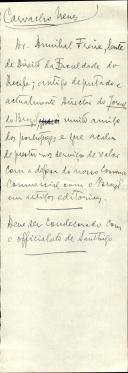 Carvalho Neves
Dr. Annibal Freire, lente
de Direito da Faculdade do
Recife; antigo deputado e
actualmente Director do Jornal
do Brasil, muito amigo
dos portugueses e que acaba
de prestar-nos serviço de valor
com a defeza do nosso Convenio
Commercial com o Brasil
em artigos editoriaes.
Deve ser condecorado com
o officialato de Santhiago